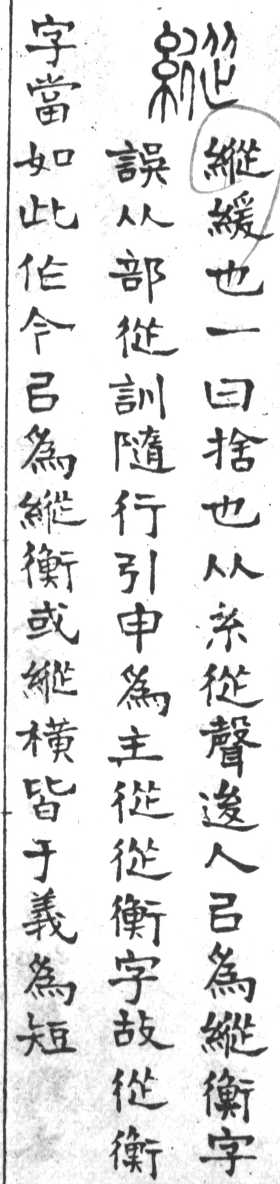 縱
縱緩也一曰捨也从糸從聲後人㠯為縱衡字
誤从部從訓隨行引申為主從從衡字故從衡
字當如此作今㠯為縱衡或縱橫皆于義為短